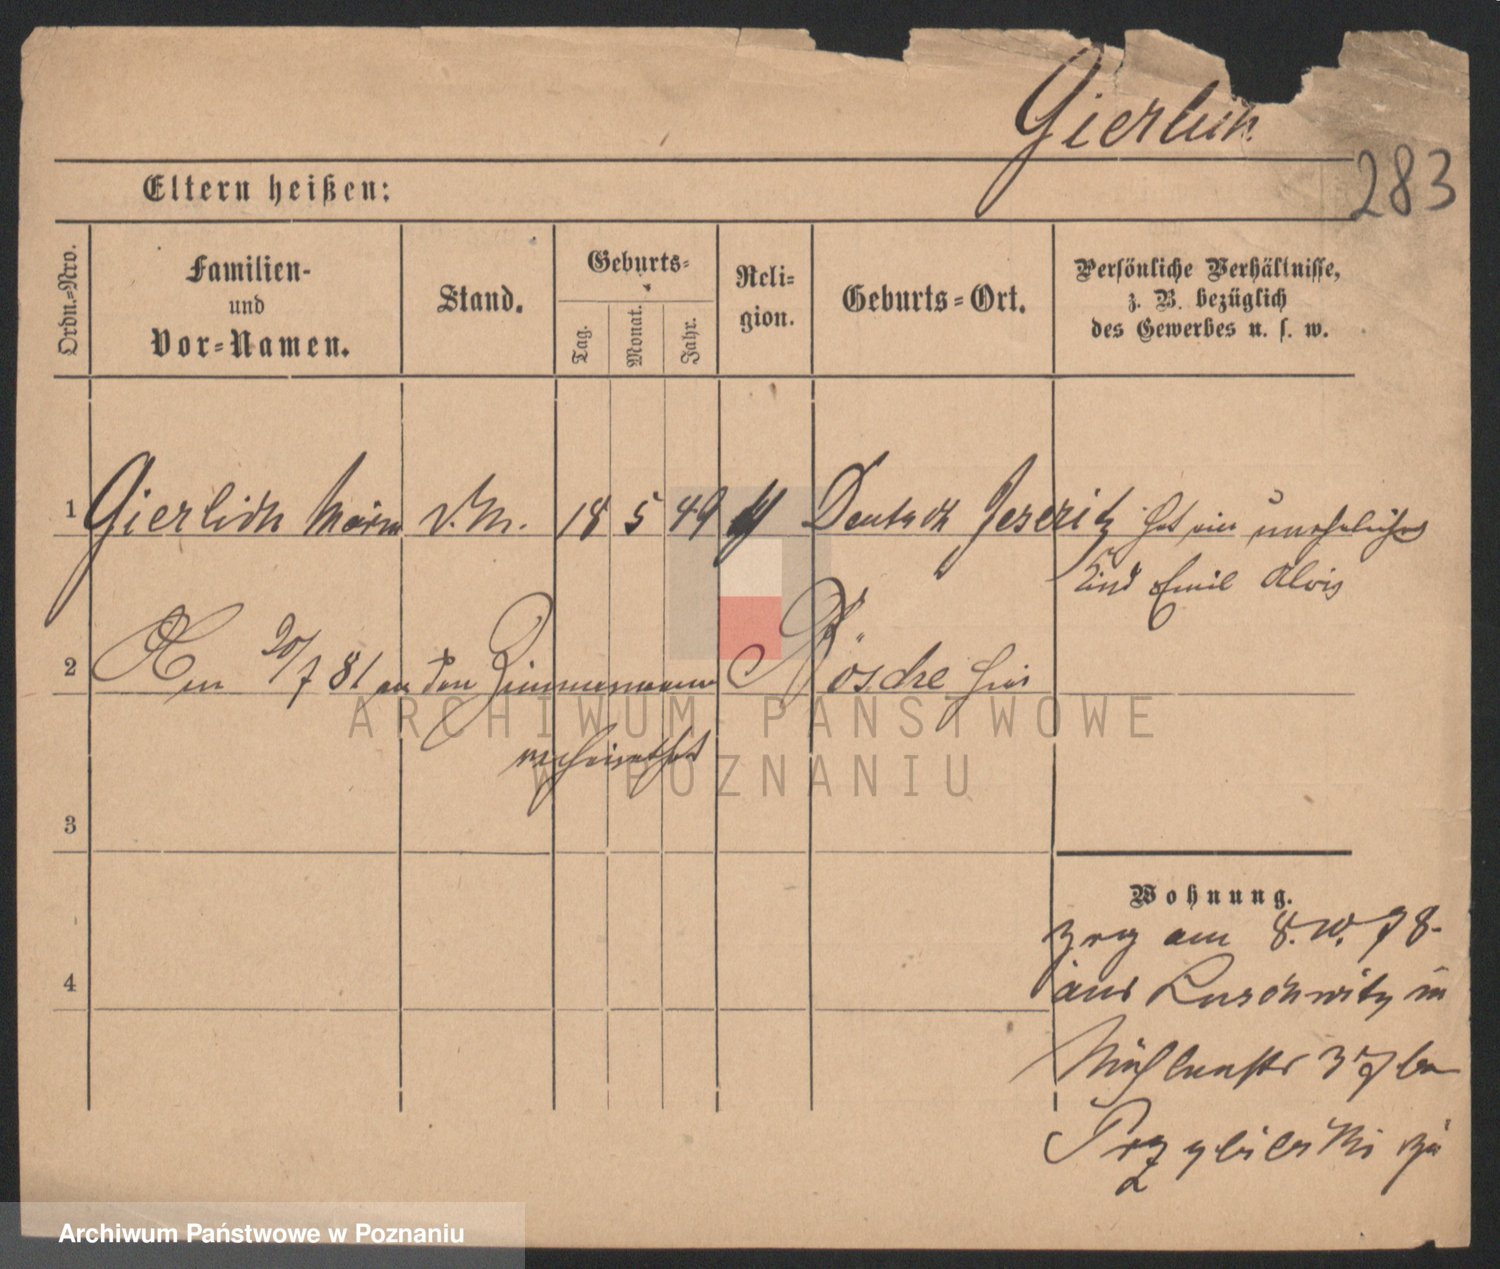 Gierlich.
283
Eltern heißen:
Ordn.=Nro.
Familien-
und
Vor=Namen.
Stand.
Geburts=
Tag.
Monat.
Jahr.
Reli=
gion.
Geburts=Ort.
Persönliche Verhältnisse,
z. B. bezüglich
des Gewerbes u. s. w.
1 Gierlich Maria 18 5 49 Deutsch Jeseritz hat ein uneheliches
Kind Emil Alois
2 Am 20/7 81 an den Zimmermann Rösche hier
verheirathet
3
4
Wohnung.
am 8. 10. 78.
aus Luschwitz in
Mühlenstr 37 bei
Przybilski
ARCHIWUM PAŃSTWOWE
W POZNANIU
Archiwum Państwowe w Poznaniu